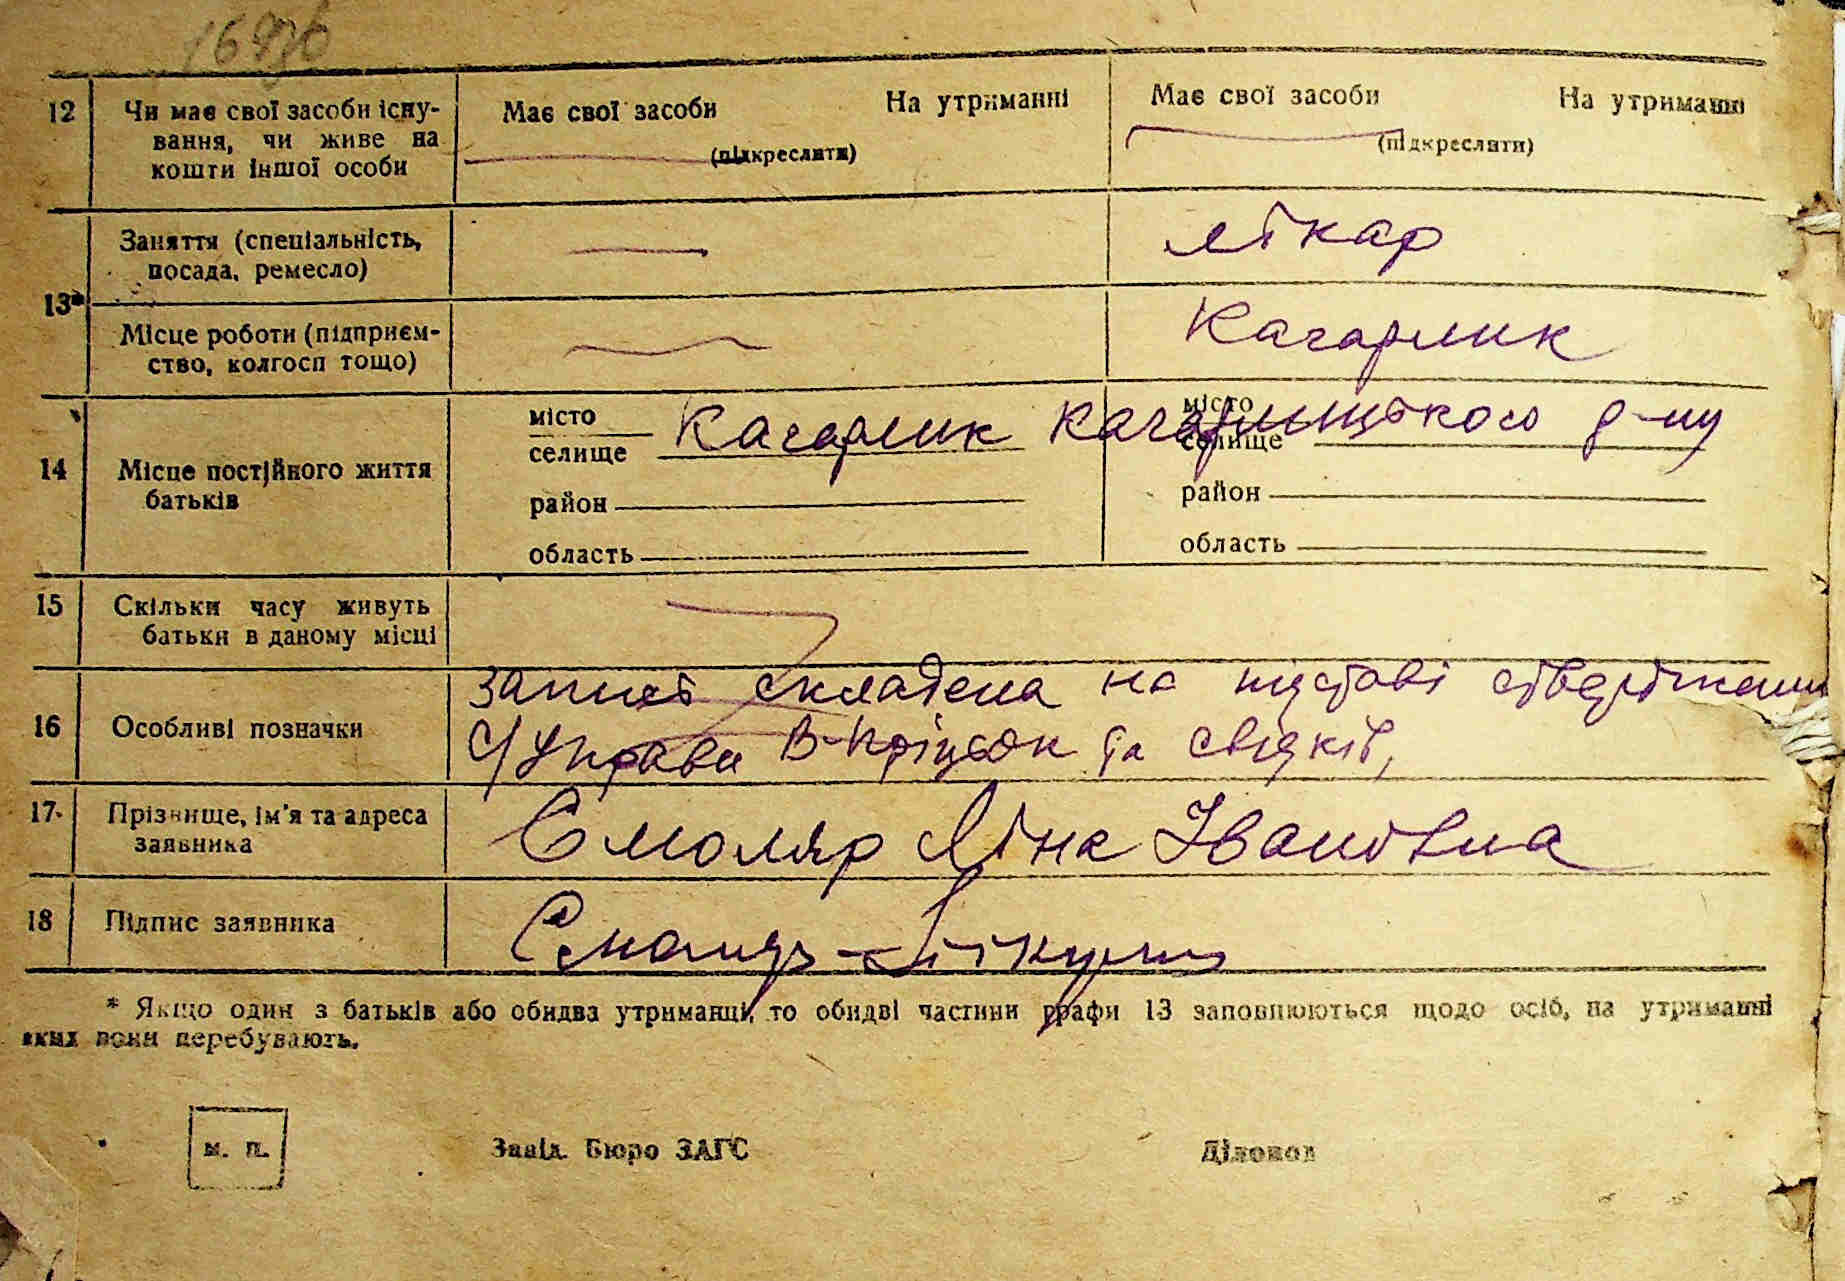 12 Чи має свої засоби існу-
вання, чи живе на
кошти іншої особи
Має свої засоби На утриманні
(підкреслити)
Має свої засоби На утриманні
(підкреслити)
13*
Заняття (спеціальність,
посада, ремесло)
лікар
Місце роботи (підприєм-
ство, колгосп тощо)
Кагарлик
14 Місце постійного життя
батьків
місто
селище
Кагарлик Кагарлицького р-ну
район
область
місто
селище
район
область
15 Скільки часу живуть
батьки в даному місці
16 Особливі позначки
Запись складена на підставі ствердження
С/Управи та свідків,
17. Прізвище, ім'я та адреса
заявника
Смоляр Ліна Іванівна
18 Підпис заявника
Смоляр-
* Якщо один з батьків або обидва утриманці, то обидві частини графи 13 заповнюються щодо осіб, на утриманні
яких вони перебувають.
м. п.
Завід. Бюро ЗАГС
Діловод